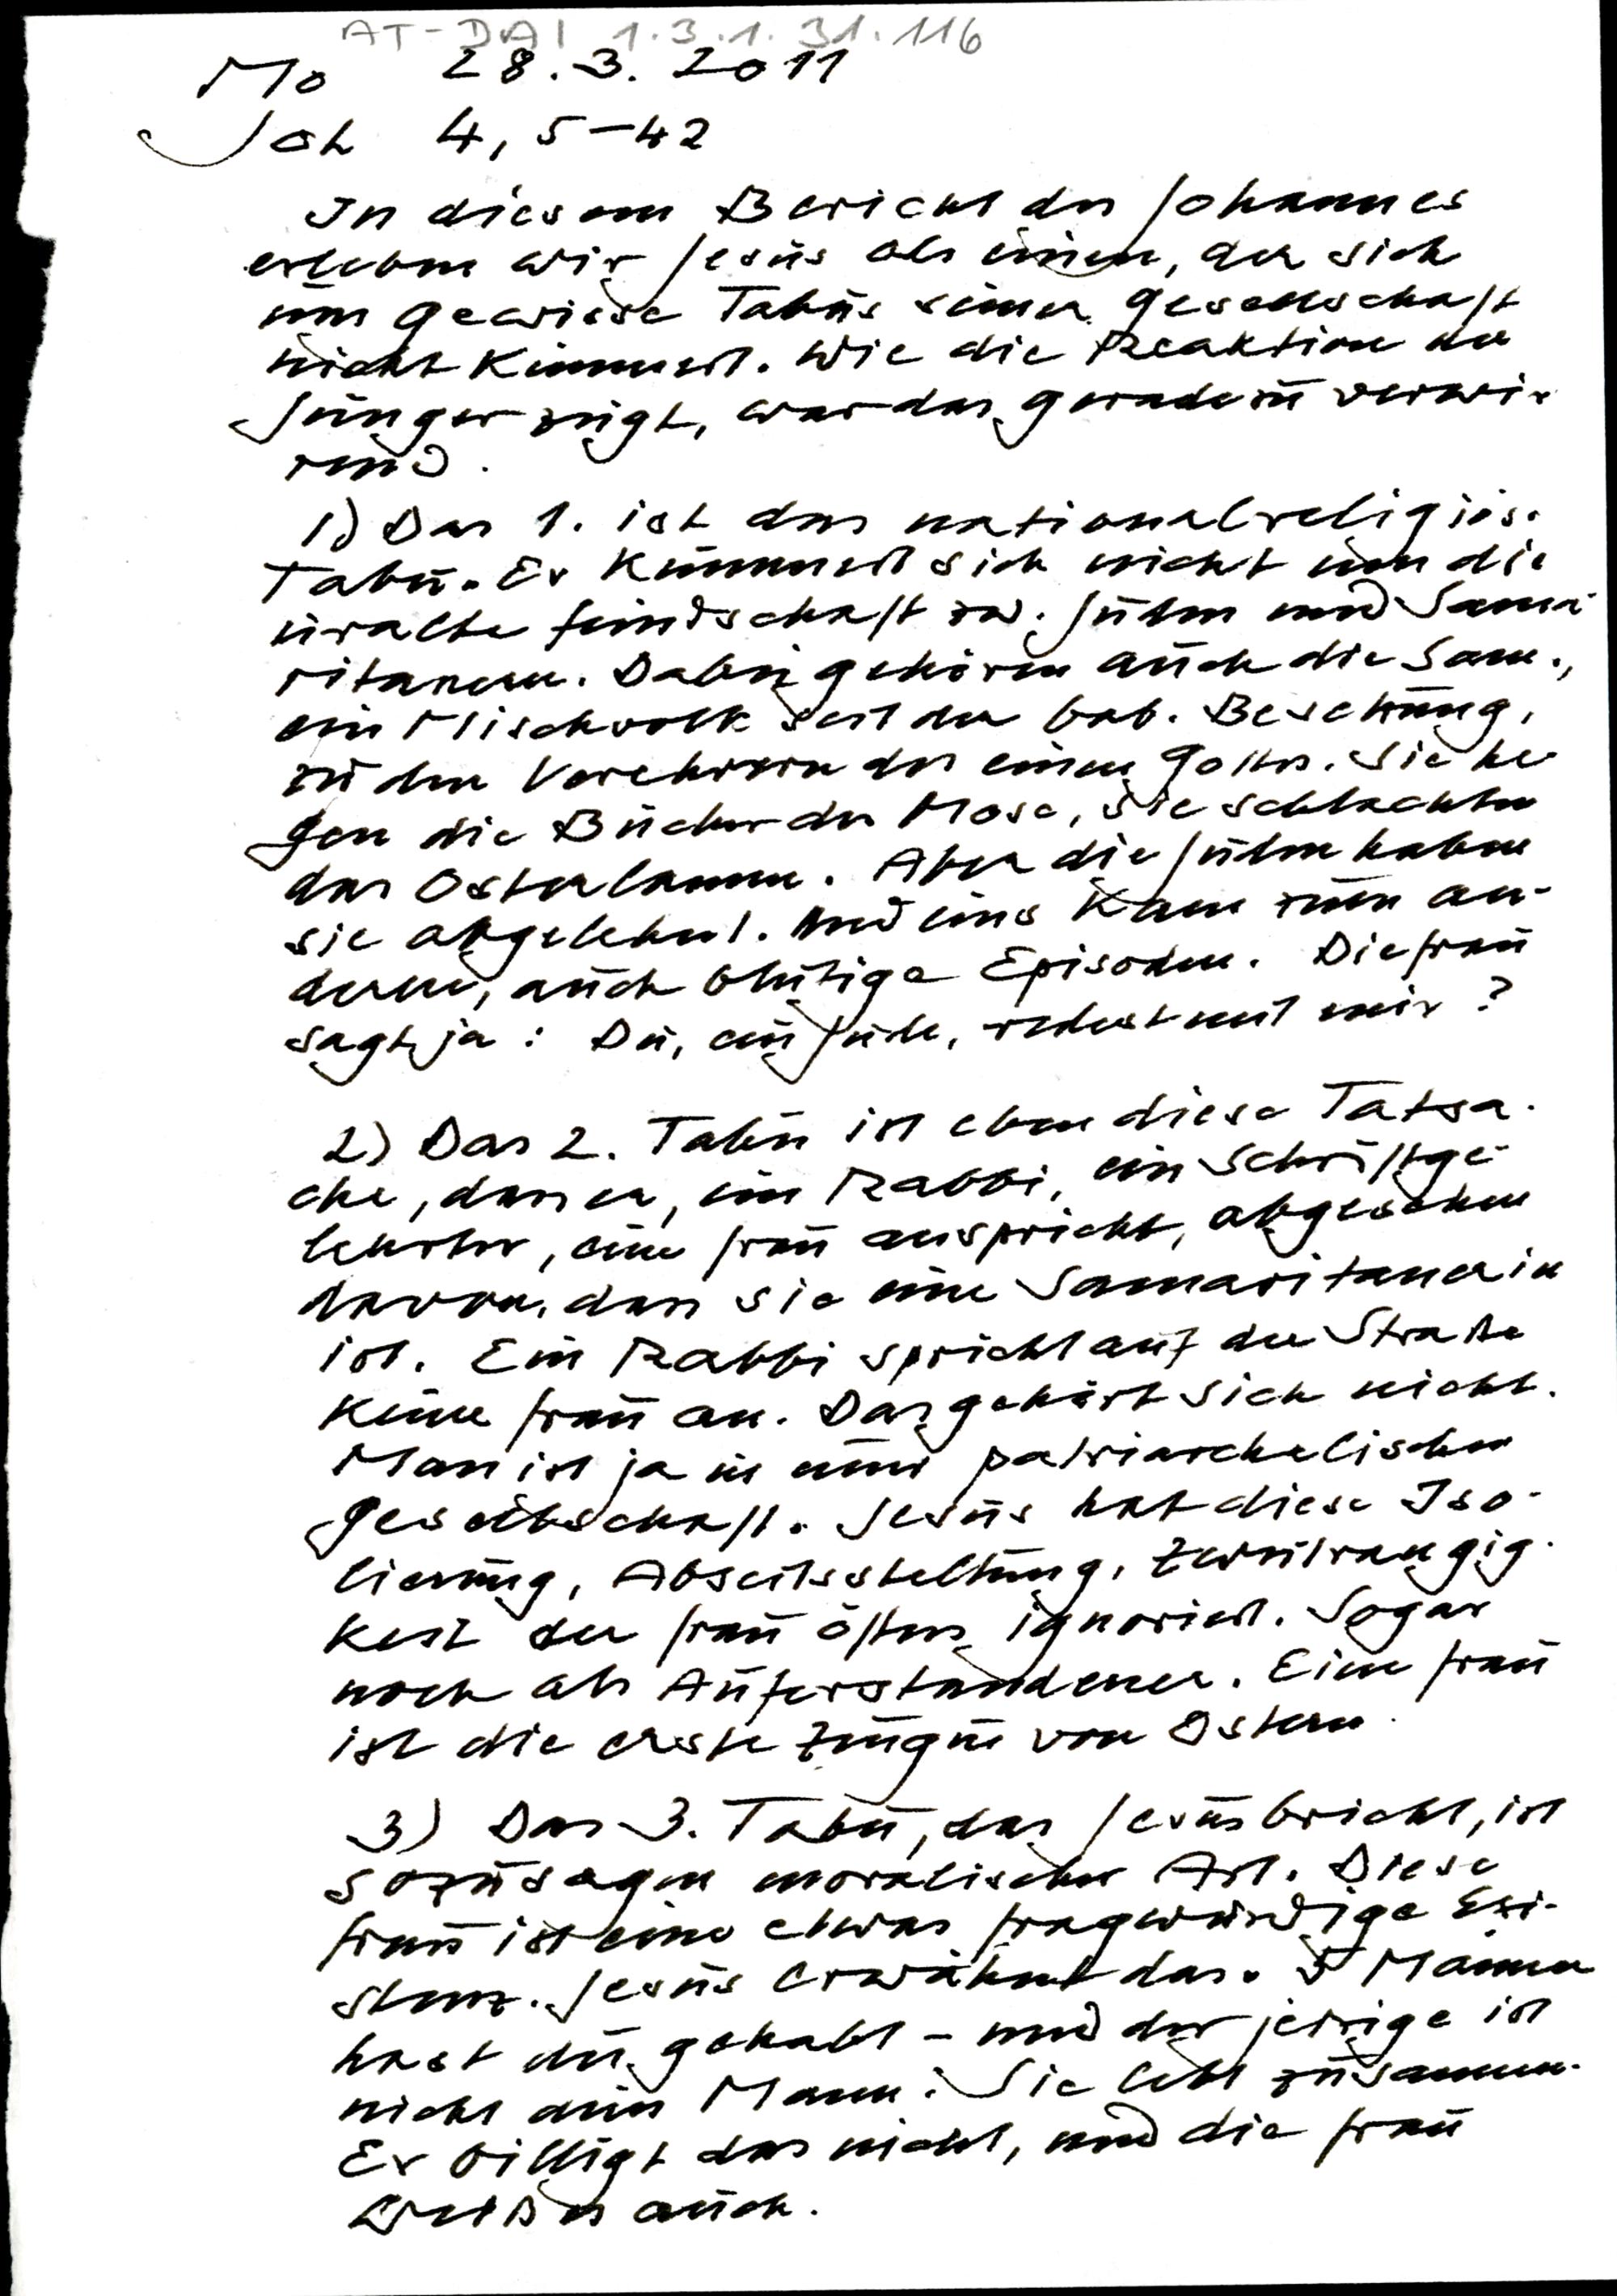 AT-DAI 1.3.1.31.116
Mo 28.3.2011
Joh 4,5-42
In diesem Bericht des Johannes
erleben wir Jesus als einen, der sich
um gewisse Tabus seiner Gesellschaft
nicht kümmert. Wie die Reaktion der
Jünger zeigt, war das geradezu verwir
rend.
1) Das 1. ist das nationalreligiöse
Tabu. Er kümmert sich nicht um die
uralte Feindschaft zw. Juden und Sama-
ritanern. Dabei gehören auch die Sam.,
ein Mischvolk seit der bab. Besetzung,
zu den Verehrern des einen Gottes. Sie he
gen die Bücher des Mose, sie schlachten
das Osterlamm. Aber die Juden haben
sie abgelehnt. Und eins kam zum an-
deren, auch blutige Episoden. Die Frau
sagt ja: Du, ein Jude, redest mit mir?
2) Das 2. Tabu ist eben diese Tatsa-
che, dass er, ein Rabbi, ein Schriftge-
lehrter, eine Frau anspricht, abgesehen
davon, dass sie eine Samaritanerin
ist. Ein Rabbi spricht auf der Straße
keine Frau an. Das gehört sich nicht.
Man ist ja in einer patriarchalischen
Gesellschaft. Jesus hat diese Iso-
lierung, Abseitsstellung, Zweitrangig-
keit der Frau öfters ignoriert. Sogar
noch als Auferstandener. Eine Frau
ist die erste Zeugin von Ostern.
3) Das 3. Tabu, das Jesus bricht, ist
sozusagen moralischer Art. Diese
Frau ist eine etwas fragwürdige Exi-
stenz. Jesus erwähnt das. 5 Männer
hast du gehabt - und der jetzige ist
nicht dein Mann. Sie lebt zusammen.
Er billigt das nicht, und die Frau
weiß es auch.